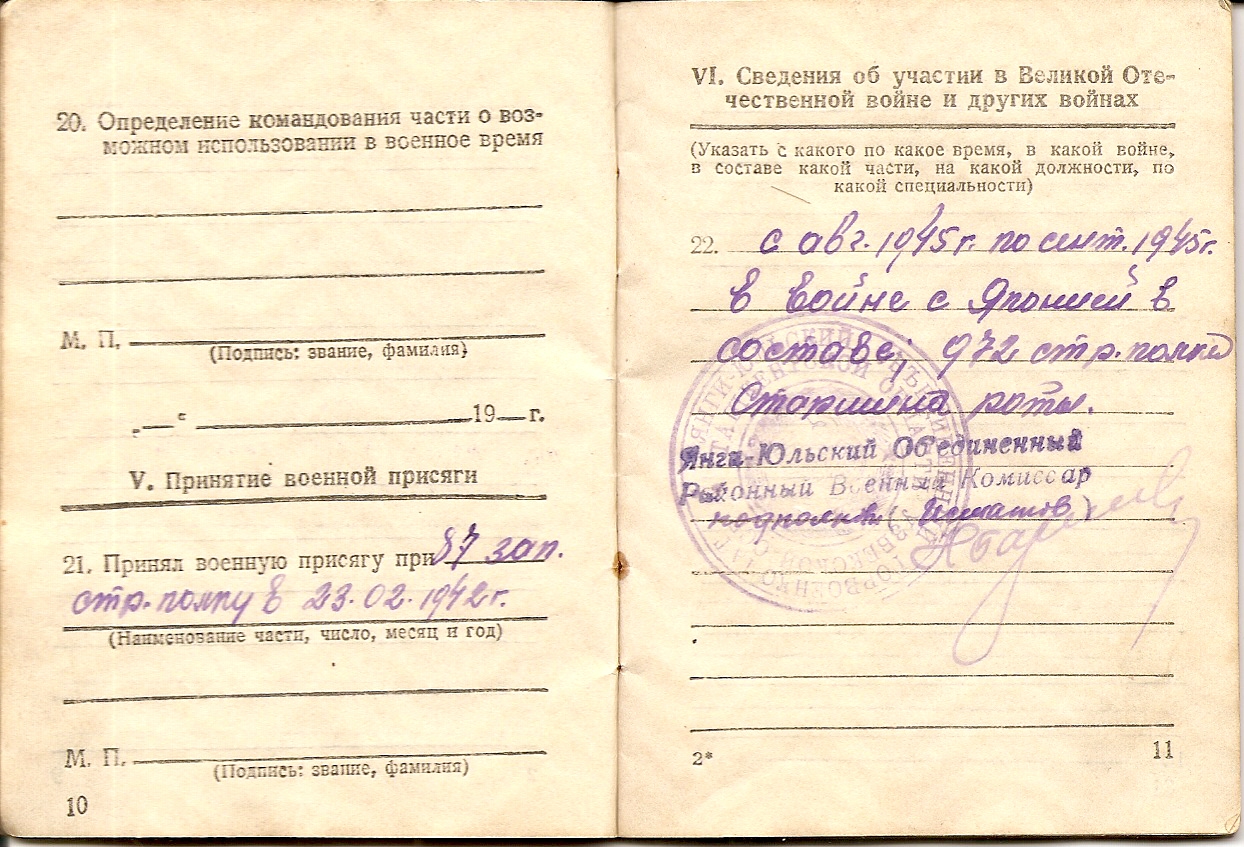 20. Определение командования части о воз-
можном использовании в военное время
М. П.
(Подпись: звание, фамилия)
„ — “ 19 — г.
V. Принятие военной присяги
21. Принял военную присягу при 87 зап.
стр. полку в 23.02.1942г.
(Наименование части, число, месяц и год)
М. П.
(Подпись: звание, фамилия)
10
VI. Сведения об участии в Великой Оте-
чественной войне и других войнах
(Указать с какого по какое время, в какой войне,
в составе какой части, на какой должности, по
какой специальности)
22. с авг. 1945г. по сент. 1945г.
в войне с Японией в
составе 972 стр. полка
Старшина роты.
Янги-Юльский Объединенный
Районный Военный Комиссар
подполков. (Ишматов)
2*
11